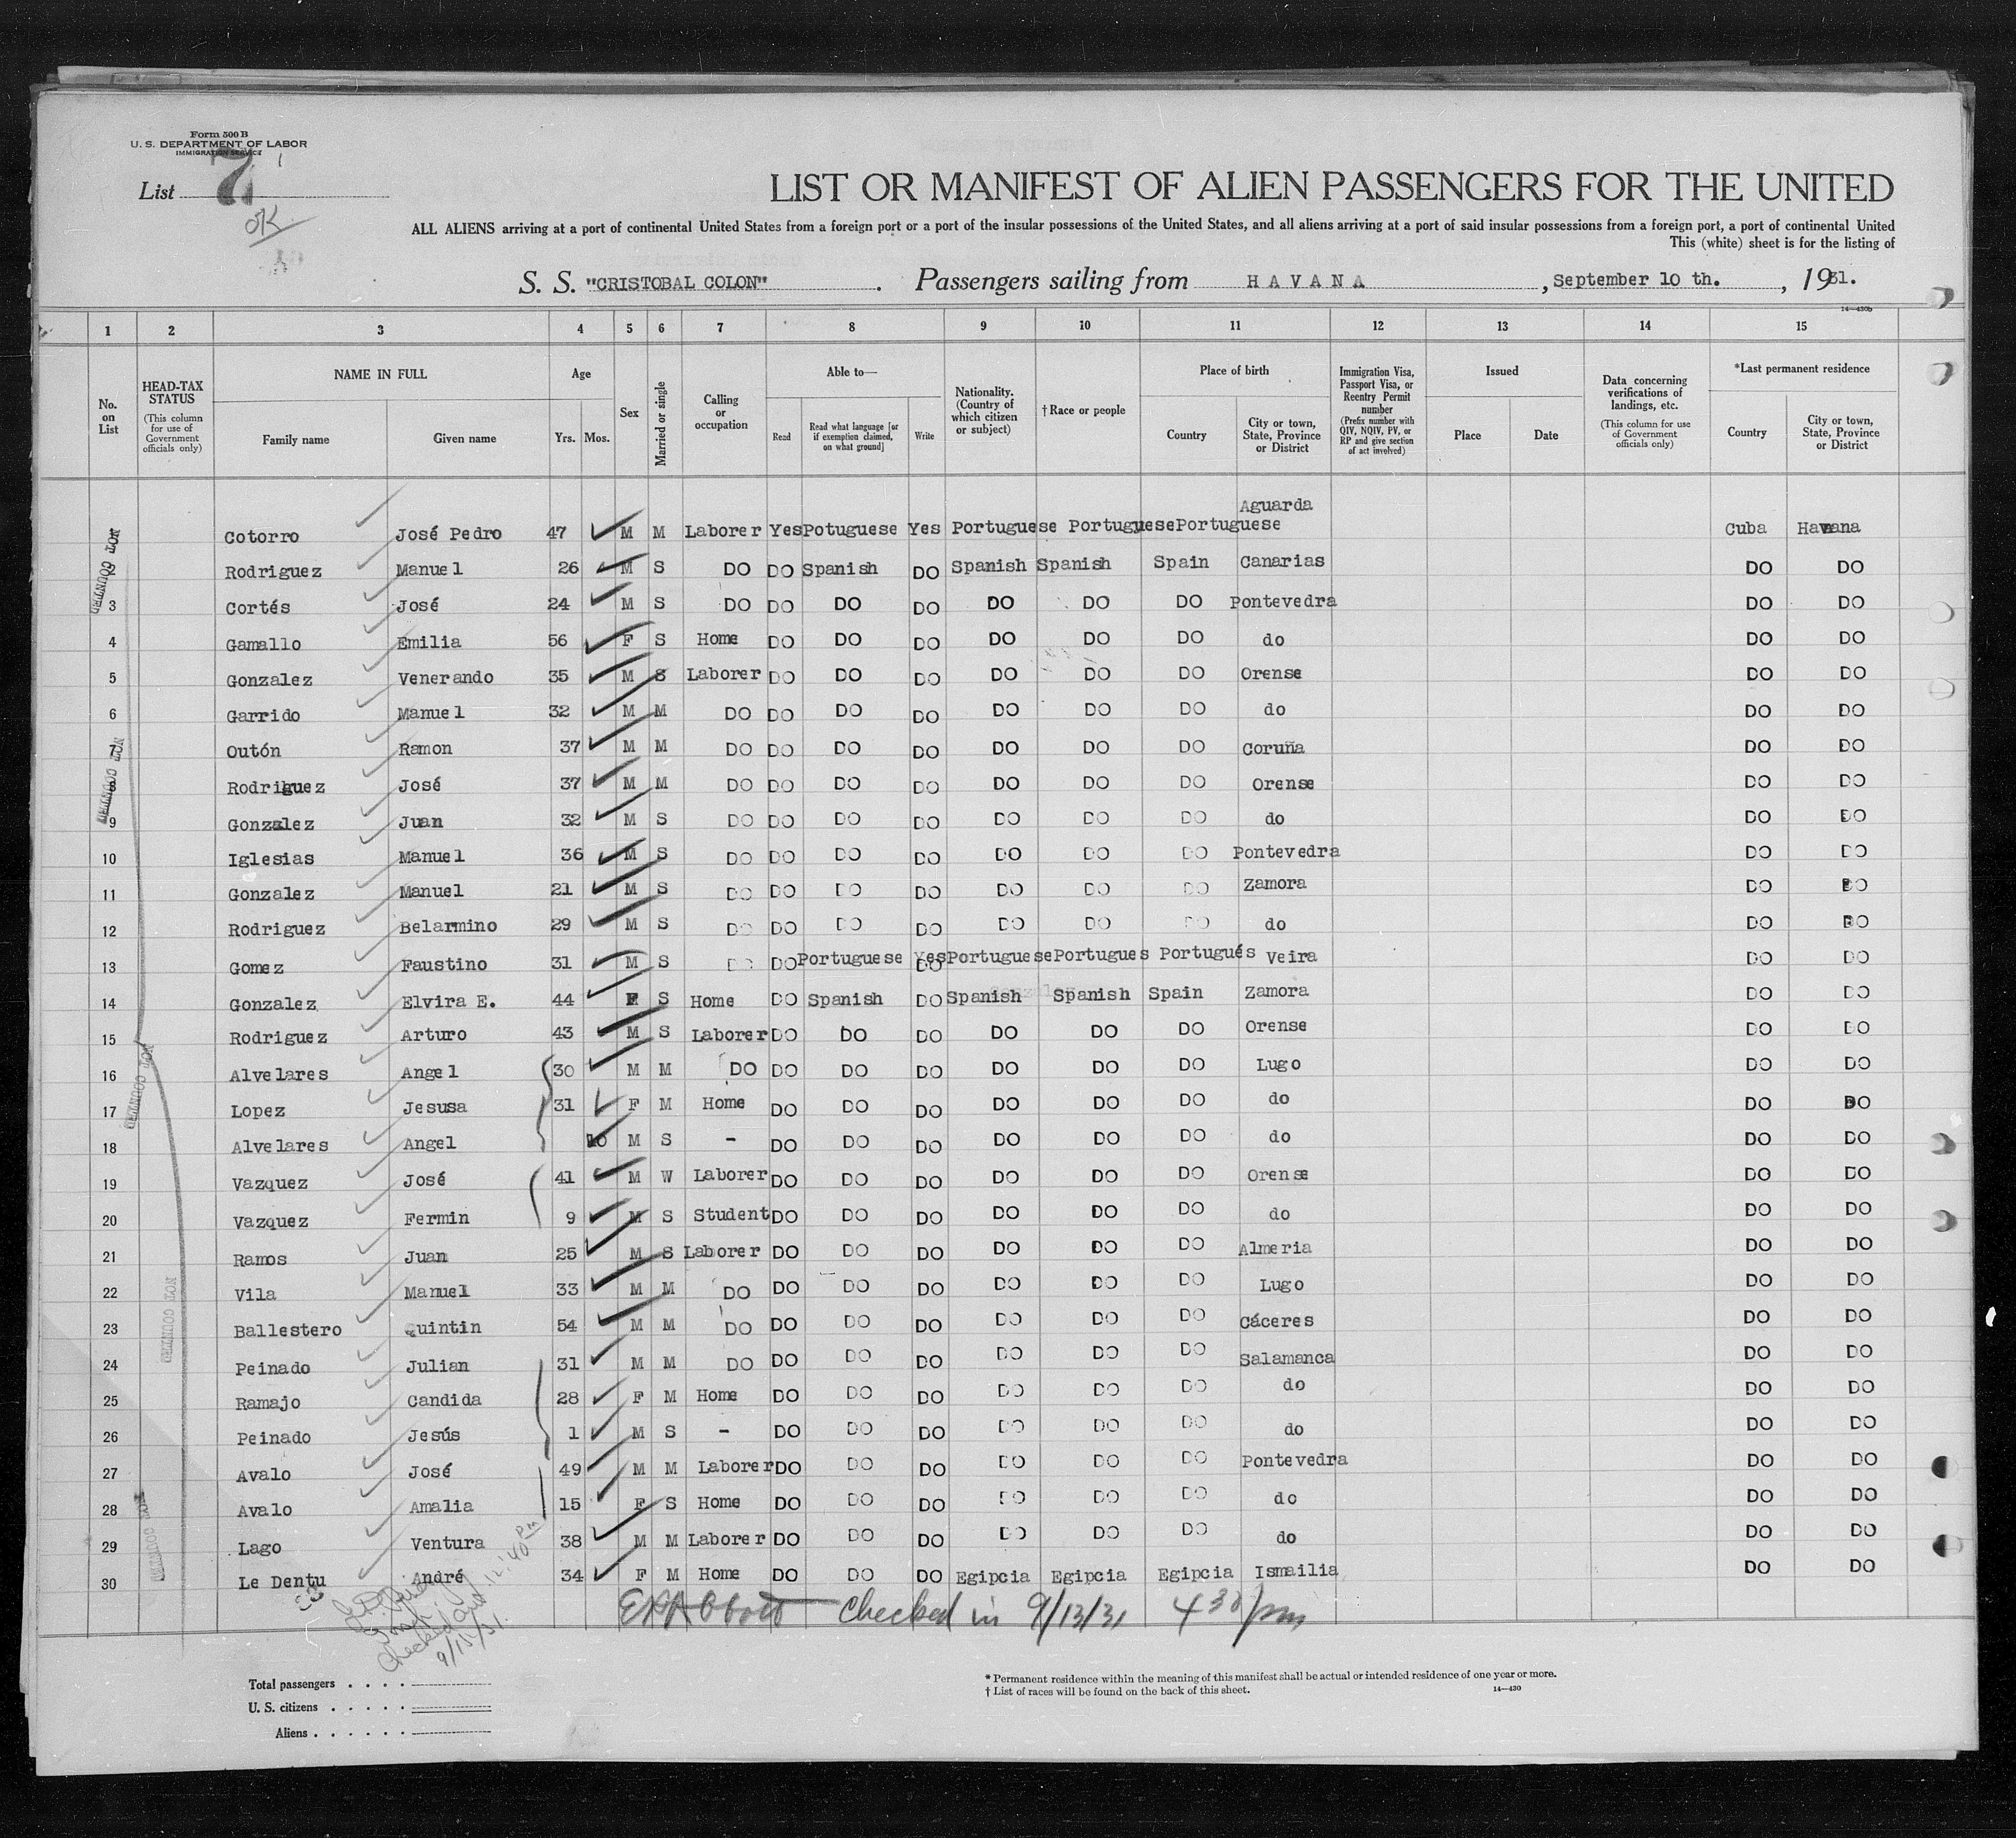 Form 500 B
U. S. DEPARTMENT OF LABOR
IMMIGRATION SERVICE
List 7
OK
LIST OR MANIFEST OF ALIEN PASSENGERS FOR THE UNITED
ALL ALIENS arriving at a port of continental United States from a foreign port or a port of the insular possessions of the United States, and all aliens arriving at a port of said insular possessions from a foreign port, a port of continental United
This (white) sheet is for the listing of
S. S. "CRISTOBAL COLON" . Passengers sailing from HAVANA , September 10 th. , 1931.
14—430b
1 2 3 4 5 6 7 8 9 10 11 12 13 14 15
No. on List
HEAD-TAX STATUS (This column for use of Government officials only)
NAME IN FULL
Family name Given name
Age
Yrs. Mos.
Sex
Married or single
Calling or occupation
Able to—
Read
Read what language [or if exemption claimed, on what ground]
Write
Nationality. (Country of which citizen or subject)
†Race or people
Place of birth
Country
City or town, State, Province or District
Immigration Visa, Passport Visa, or Reentry Permit number (Prefix number with QIV, NQIV, PV, or RP and give section of act involved)
Issued
Place Date
Data concerning verifications of landings, etc. (This column for use of Government officials only)
*Last permanent residence
Country
City or town, State, Province or District
NOT COUNTED
Aguarda
Cotorro José Pedro 47 M M Laborer Yes Potuguese Yes Portuguese Portuguese Portuguese Cuba Havana
Rodriguez Manuel 26 M S DO DO Spanish DO Spanish Spanish Spain Canarias DO DO
3 Cortés José 24 M S DO DO DO DO DO DO DO Pontevedra DO DO
4 Gamallo Emilia 56 F S Home DO DO DO DO DO DO do DO DO
5 Gonzalez Venerando 35 M S Laborer DO DO DO DO DO DO Orense DO DO
6 Garrido Manuel 32 M M DO DO DO DO DO DO DO do DO DO
7 Outón Ramon 37 M M DO DO DO DO DO DO DO Coruña DO DO
NOT COUNTED
8 Rodriguez José 37 M M DO DO DO DO DO DO DO Orense DO DO
9 Gonzalez Juan 32 M S DO DO DO DO DO DO DO do DO DO
10 Iglesias Manuel 36 M S DO DO DO DO DO DO DO Pontevedra DO DO
11 Gonzalez Manuel 21 M S DO DO DO DO DO DO DO Zamora DO DO
12 Rodriguez Belarmino 29 M S DO DO DO DO DO DO DO do DO DO
13 Gomez Faustino 31 M S DO DO Portuguese Yes DO Portuguese Portugues Portugués Veira DO DO
14 Gonzalez Elvira E. 44 F S Home DO Spanish DO Spanish Spanish Spain Zamora DO DO
15 Rodriguez Arturo 43 M S Laborer DO DO DO DO DO DO Orense DO DO
16 Alvelares Angel 30 M M DO DO DO DO DO DO DO Lugo DO DO
NOT COUNTED
17 Lopez Jesusa 31 F M Home DO DO DO DO DO DO do DO DO
18 Alvelares Angel 10 M S - DO DO DO DO DO DO do DO DO
19 Vazquez José 41 M W Laborer DO DO DO DO DO DO Orense DO DO
20 Vazquez Fermin 9 M S Student DO DO DO DO DO DO do DO DO
21 Ramos Juan 25 M S Laborer DO DO DO DO DO DO Almeria DO DO
22 Vila Manuel 33 M M DO DO DO DO DO DO DO Lugo DO DO
NOT COUNTED
23 Ballestero Quintin 54 M M DO DO DO DO DO DO DO Cáceres DO DO
24 Peinado Julian 31 M M DO DO DO DO DO DO DO Salamanca DO DO
25 Ramajo Candida 28 F M Home DO DO DO DO DO DO do DO DO
26 Peinado Jesús 1 M S - DO DO DO DO DO DO do DO DO
27 Avalo José 49 M M Laborer DO DO DO DO DO DO Pontevedra DO DO
28 Avalo Amalia 15 F S Home DO DO DO DO DO DO do DO DO
NOT COUNTED
29 Lago Ventura 38 M M Laborer DO DO DO DO DO DO do DO DO
30 Le Dentu André 34 F M Home DO DO DO Egipcia Egipcia Egipcia Ismailia DO DO
Checked in 9/13/31 4 30 pm
Checked out 12:40 Pm
9/15/31.
Total passengers
U. S. citizens
Aliens
* Permanent residence within the meaning of this manifest shall be actual or intended residence of one year or more.
† List of races will be found on the back of this sheet.
14—430